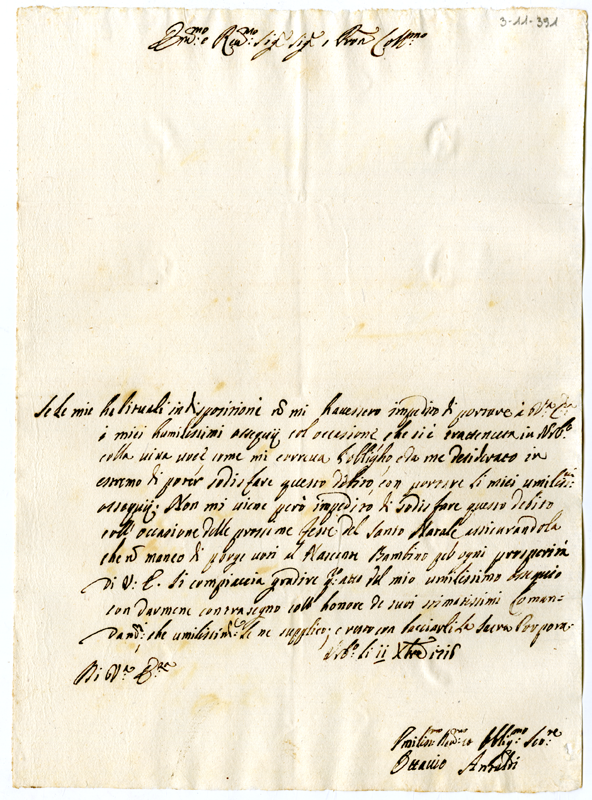 3-11-391
Em.mo e Rev.mo Sig.r Sig.r e Pron Coll.mo
Se le mie habituali indisposizione nō mi havessero impedito di portare à V.ra Em.za
i miei humilissimi ossequij col occasione che si è trattenuta in
colla viva voce come mi correva l'obbligho, età me desiderato in
estremo di poter sodisfare questo debito con portare li miei umiliss:i
ossequij; Non mi viene però impedito di sodisfare questo debito
coll'occasione delle prossime feste del Santo Natale assicurandola
che nō manco di porge voti al Nascente Bambino ogni prosperità
Di V: E. Si compiaccia gradire q.o atto del mio umilissimo ossequio
con darmene contrasegno coll honore de suoi stimatissimi Coman-
Dandi, che umilissim.e Le ne supplico; e resto con bacciarli la Sacra Porpora.
li 11 Xbre 1715
Di V.ra Em.za
Umilis.mo Dev.mo et Obblig.mo Ser.re
Ottavio